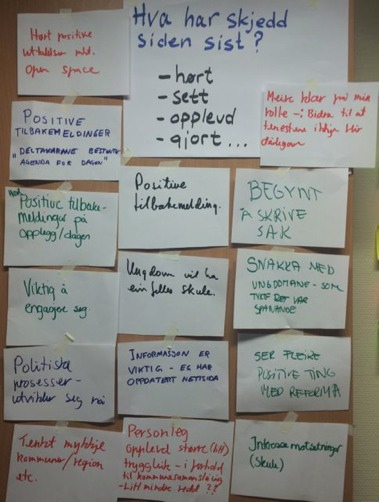 Hva har skjedd
siden sist?
- hørt
- sett
- opplevd
- gjort...
Hørt positive
uttalelser mld.
Open space
Meire klar på min
rolle -: Bidra til at
tenestene ikkje blir
dårligare
POSITIVE
TILBAKEMELDINGER
"DELTAKARANE BESTEMTE
AGENDA FOR DAGEN"
Positive
tilbakemelding.
BEGYNT
Å SKRIVE
SAK
Positive tilbake-
meldinger på
opplegg/dagen
Ungdom vil ha
ein felles skule.
SNAKKA MED
UNGDOMANE - SOM
DET VAR
SPANANDE
Viktig å
engasjere seg
INFORMASJON ER
VIKTIG - EG HAR
OPPDATERT NETTSIDA
SER FLEIRE
POSITIVE TING
MED REFORMA
Politiske
prosesser -
utvikler seg nå
Tenkt mykkje
kommune/region
etc.
Personleg
opplevd større (litt)
tryggleik - i forhold
til kommunesammenslåing
- Litt mindre redd ??
Interessemotsetninger
(skule)